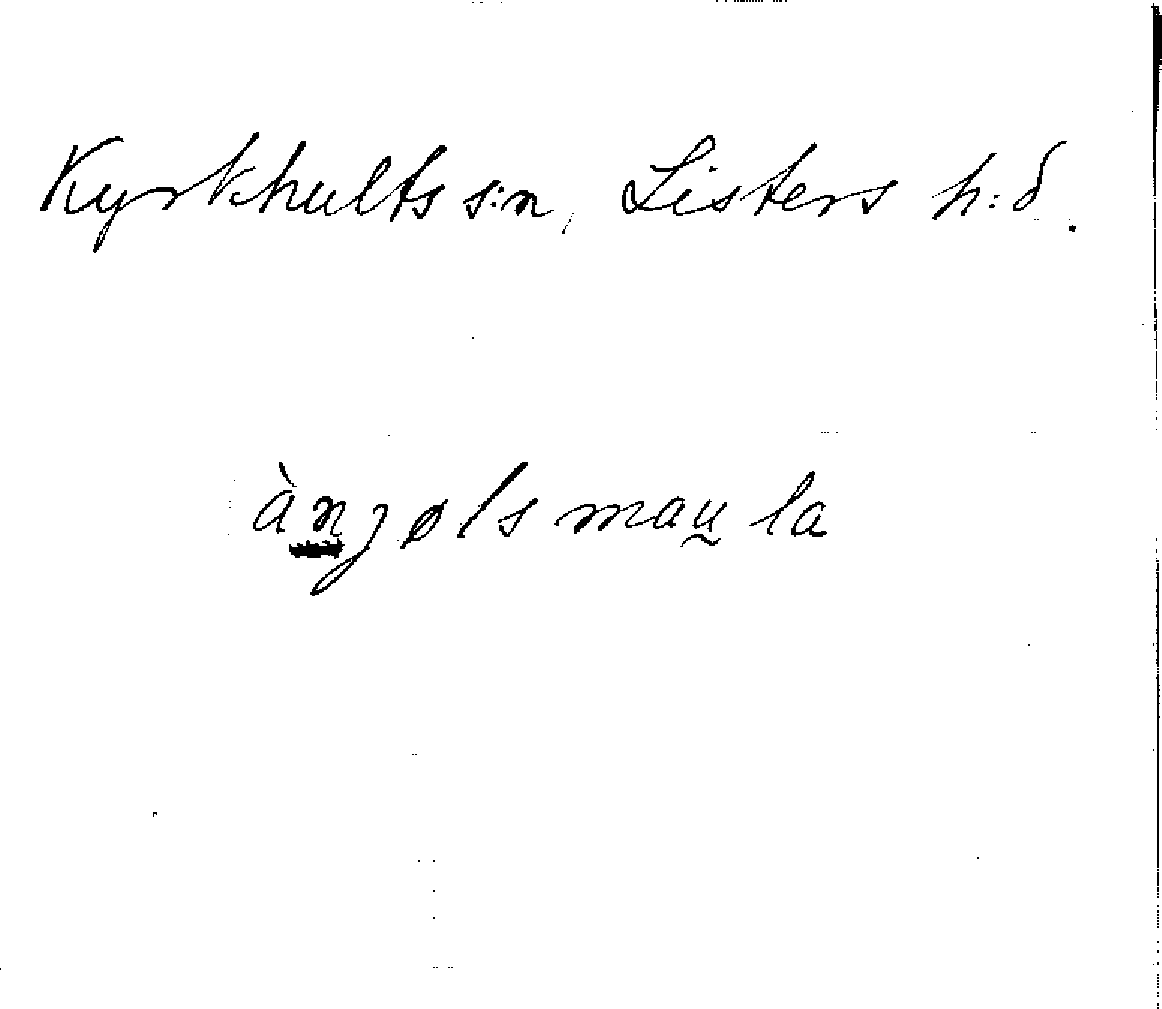 Kyrkhults s:n, Listers h:d.
àn̲jølsmau̯la